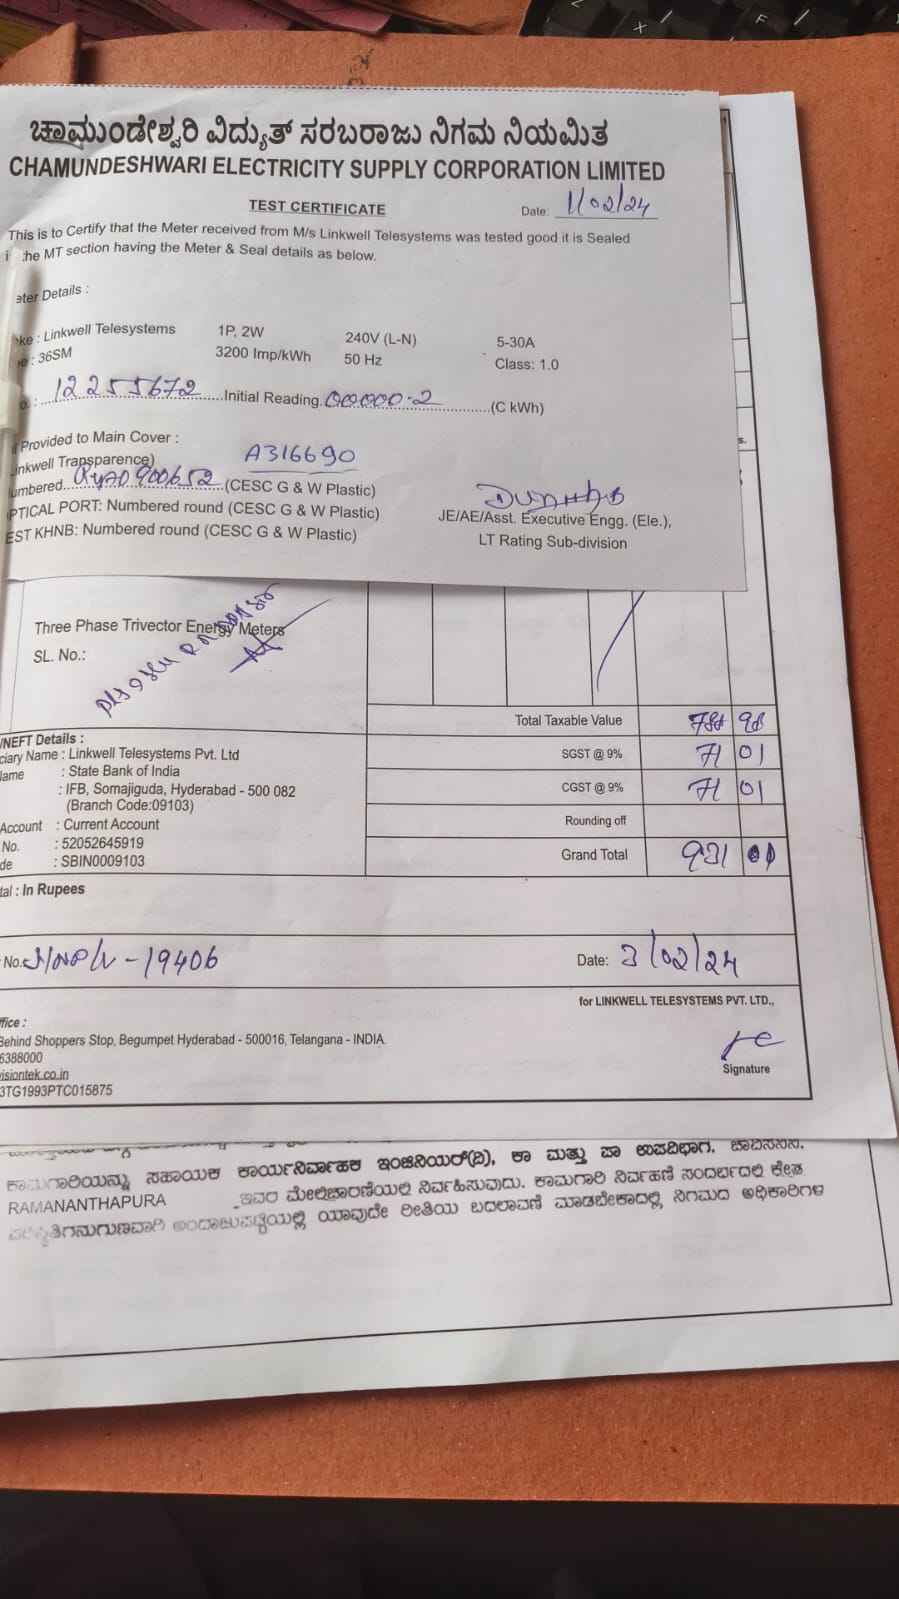 ಚಾಮುಂಡೇಶ್ವರಿ ವಿದ್ಯುತ್ ಸರಬರಾಜು ನಿಗಮ ನಿಯಮಿತ
CHAMUNDESHWARI ELECTRICITY SUPPLY CORPORATION LIMITED
TEST CERTIFICATE
Date: 1/02/24
This is to Certify that the Meter received from M/s Linkwell Telesystems was tested good it is Sealed
the MT section having the Meter & Seal details as below.
eter Details :
ke : Linkwell Telesystems 1P, 2W 240V (L-N) 5-30A
e : 36SM 3200 Imp/kWh 50 Hz Class: 1.0
o. : 12255672 Initial Reading. 00000.2 (C kWh)
l Provided to Main Cover :
inkwell Transparence) A316690
umbered (CESC G & W Plastic)
PTICAL PORT: Numbered round (CESC G & W Plastic)
EST KHNB: Numbered round (CESC G & W Plastic)
JE/AE/Asst. Executive Engg. (Ele.),
LT Rating Sub-division
s.
Three Phase Trivector Energy Meters
SL. No.:
Total Taxable Value
/NEFT Details :
ciary Name : Linkwell Telesystems Pvt. Ltd
SGST @ 9% 71 01
lame : State Bank of India
: IFB, Somajiguda, Hyderabad - 500 082
CGST @ 9% 71 01
(Branch Code:09103)
Account : Current Account
Rounding off
No. : 52052645919
de : SBIN0009103
Grand Total 931
tal : In Rupees
No. - 19406
Date: 3/02/24
for LINKWELL TELESYSTEMS PVT. LTD.,
ffice :
Behind Shoppers Stop, Begumpet Hyderabad - 500016, Telangana - INDIA
6388000
visiontek.co.in
Signature
3TG1993PTC015875
ಕಾಮಗಾರಿಯನ್ನು ಸಹಾಯಕ ಕಾರ್ಯನಿರ್ವಾಹಕ ಇಂಜಿನಿಯರ್(ವಿ), ಕಾ ಮತ್ತು ಪಾ ಉಪವಿಭಾಗ,
RAMANANTHAPURA ಇವರ ಮೇಲ್ವಿಚಾರಣೆಯಲ್ಲಿ ನಿರ್ವಹಿಸುವುದು. ಕಾಮಗಾರಿ ನಿರ್ವಹಣೆ ಸಂದರ್ಭದಲ್ಲಿ ಕ್ಷೇತ್ರ
ಅಂದಾಜುಪಟ್ಟಿಯಲ್ಲಿ ಯಾವುದೇ ರೀತಿಯ ಬದಲಾವಣೆ ಮಾಡಬೇಕಾದಲ್ಲಿ ನಿಗಮದ ಅಧಿಕಾರಿಗಳ